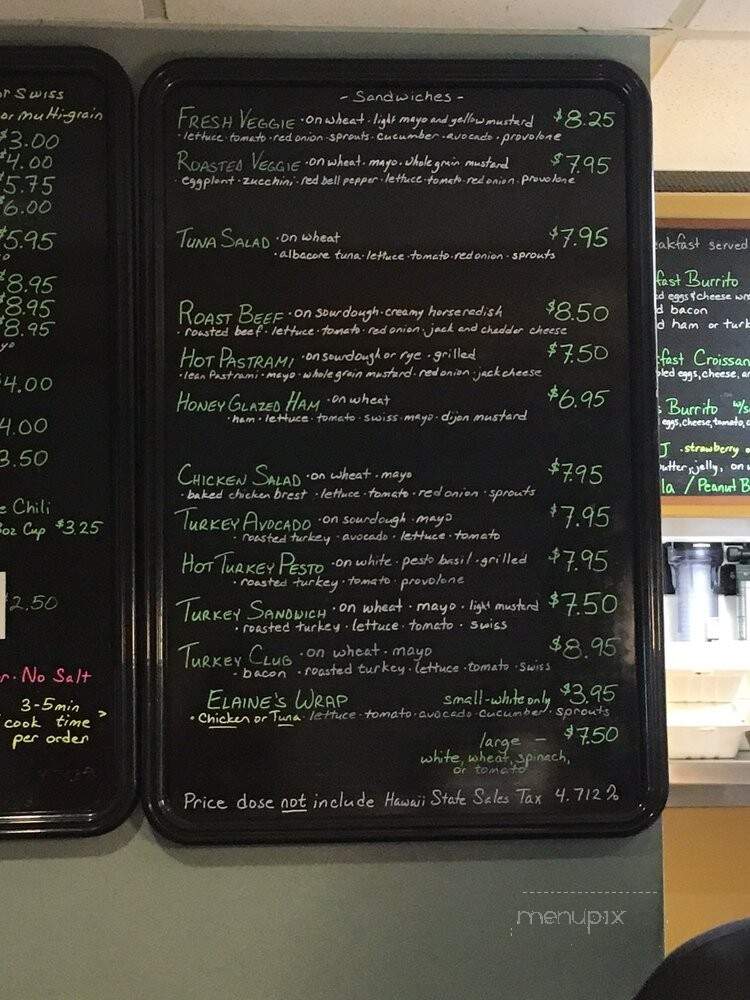 or Swiss
or multi-grain
$3.00
$4.00
$5.75
$6.00
$5.95
$8.95
$8.95
$8.95
$4.00
4.00
3.50
e Chili
8oz Cup $3.25
$2.50
r. No Salt
3-5min
cook time >
per order
- Sandwiches -
FRESH VEGGIE · on wheat · light mayo and yellow mustard $8.25
· lettuce · tomato · red onion · sprouts · cucumber · avocado · provolone
ROASTED VEGGIE · on wheat · mayo · whole grain mustard $7.95
· eggplant · zucchini · red bell pepper · lettuce · tomato · red onion · provolone
TUNA SALAD · on wheat $7.95
· albacore tuna · lettuce · tomato · red onion · sprouts
ROAST BEEF · on sourdough · creamy horseradish $8.50
· roasted beef · lettuce · tomato · red onion · jack and chedder cheese
HOT PASTRAMI · on sourdough or rye · grilled $7.50
· lean Pastrami · mayo · whole grain mustard · red onion · jack cheese
HONEY GLAZED HAM · on wheat $6.95
· ham · lettuce · tomato · swiss · mayo · dijon mustard
CHICKEN SALAD · on wheat · mayo $7.95
· baked chicken brest · lettuce · tomato · red onion · sprouts
TURKEY AVOCADO · on sourdough · mayo $7.95
· roasted turkey · avocado · lettuce · tomato
HOT TURKEY PESTO · on white · pesto basil · grilled $7.95
· roasted turkey · tomato · provolone
TURKEY SANDWICH · on wheat · mayo · light mustard $7.50
· roasted turkey · lettuce · tomato · swiss
TURKEY CLUB · on wheat · mayo $8.95
· bacon · roasted turkey · lettuce · tomato · swiss
ELAINE'S WRAP small - white only $3.95
· Chicken or Tuna · lettuce · tomato · avocado · cucumber · sprouts
large - $7.50
white, wheat, spinach,
or tomato
Price dose not include Hawaii State Sales Tax 4.712%
eakfast served
fast Burrito
ed eggs & cheese wr
d bacon
d ham or turk
kfast Croissan
bled eggs, cheese, a
s Burrito w/s
eggs, cheese, tomato, o
J · strawberry o
utter, jelly, on w
la / Peanut B
menupix